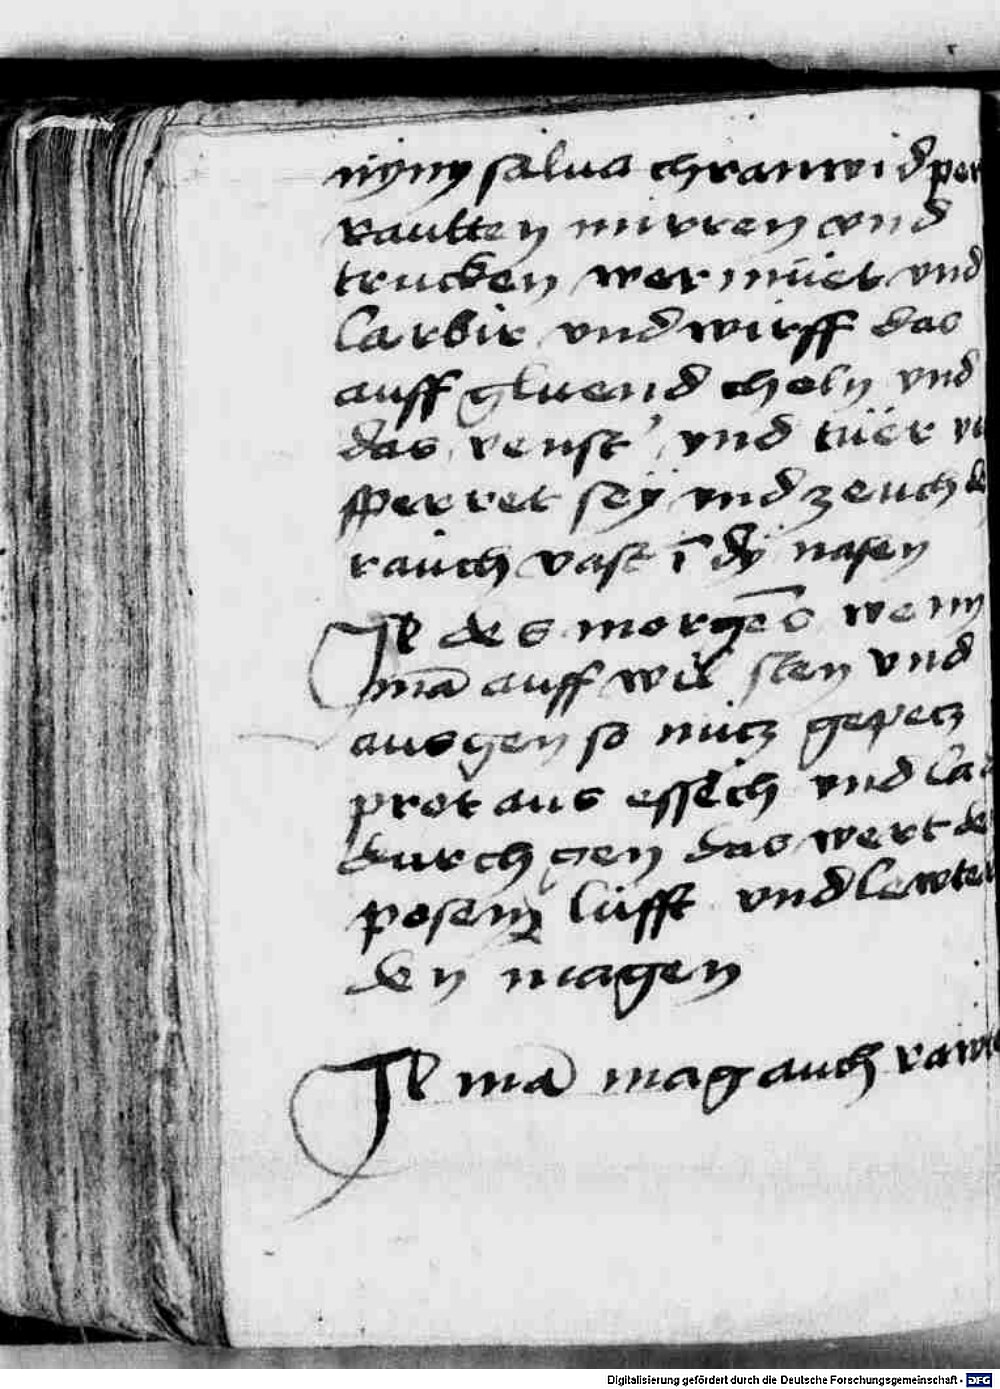 nÿmy salua chranwid per
rautten mirren vnd
trucken wermüet vnd
larbir vnd wirff das
auff gluend choln vnd
das venst' vnd tüer v
sperret seÿ vnd zeuch de
rauch vast ī dÿ nasen
Jt des morgēs wenn
mā auff wil sten vnd
ausgen so nütz gepetz
prot aus essich vnd la
durch gen das wert de
posem lüfft vnd lewte
den magen
Jt mā mag auch raw
Digitalisierung gefördert durch die Deutsche Forschungsgemeinschaft - DFG